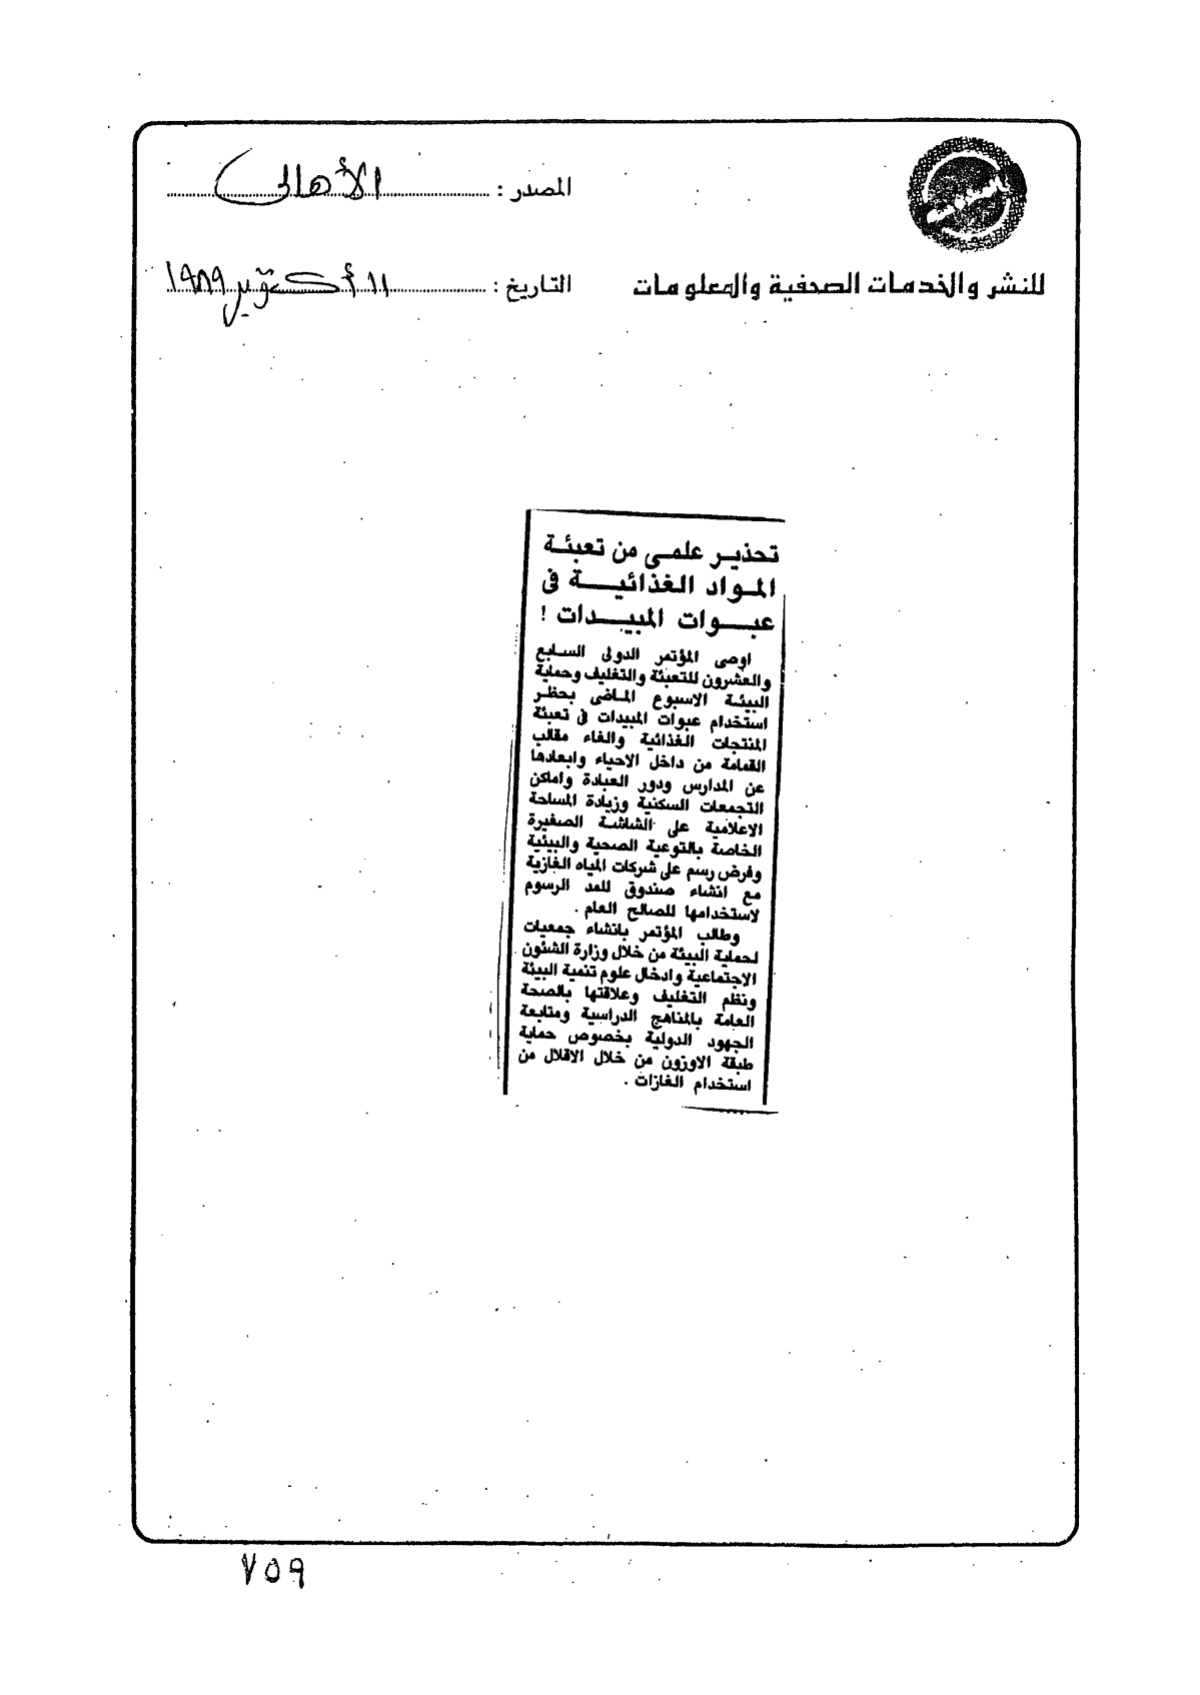 المصدر : الأهالى
للنشر والخدمات الصحفية والمعلومات
التاريخ : ١١ أكتوبر ١٩٨٩
تحذير علمى من تعبئة
المواد الغذائية فى
عبوات المبيدات !
اوصى المؤتمر الدولى السابع
والعشرون للتعبئة والتغليف وحماية
البيئة الاسبوع الماضى بحظر
استخدام عبوات المبيدات فى تعبئة
المنتجات الغذائية والغاء مقالب
القمامة من داخل الاحياء وابعادها
عن المدارس ودور العبادة واماكن
التجمعات السكنية وزيادة المساحة
الاعلامية على الشاشة الصغيرة
الخاصة بالتوعية الصحية والبيئية
وفرض رسم على شركات المياه الغازية
مع انشاء صندوق الرسوم
لاستخدامها للصالح العام .
وطالب المؤتمر بانشاء جمعيات
لحماية البيئة من خلال وزارة الشئون
الاجتماعية وادخال علوم تنمية البيئة
ونظم التغليف وعلاقتها بالصحة
العامة بالمناهج الدراسية ومتابعة
الجهود الدولية بخصوص حماية
طبقة الاوزون من خلال الاقلال من
استخدام الغازات .
٧٥٩